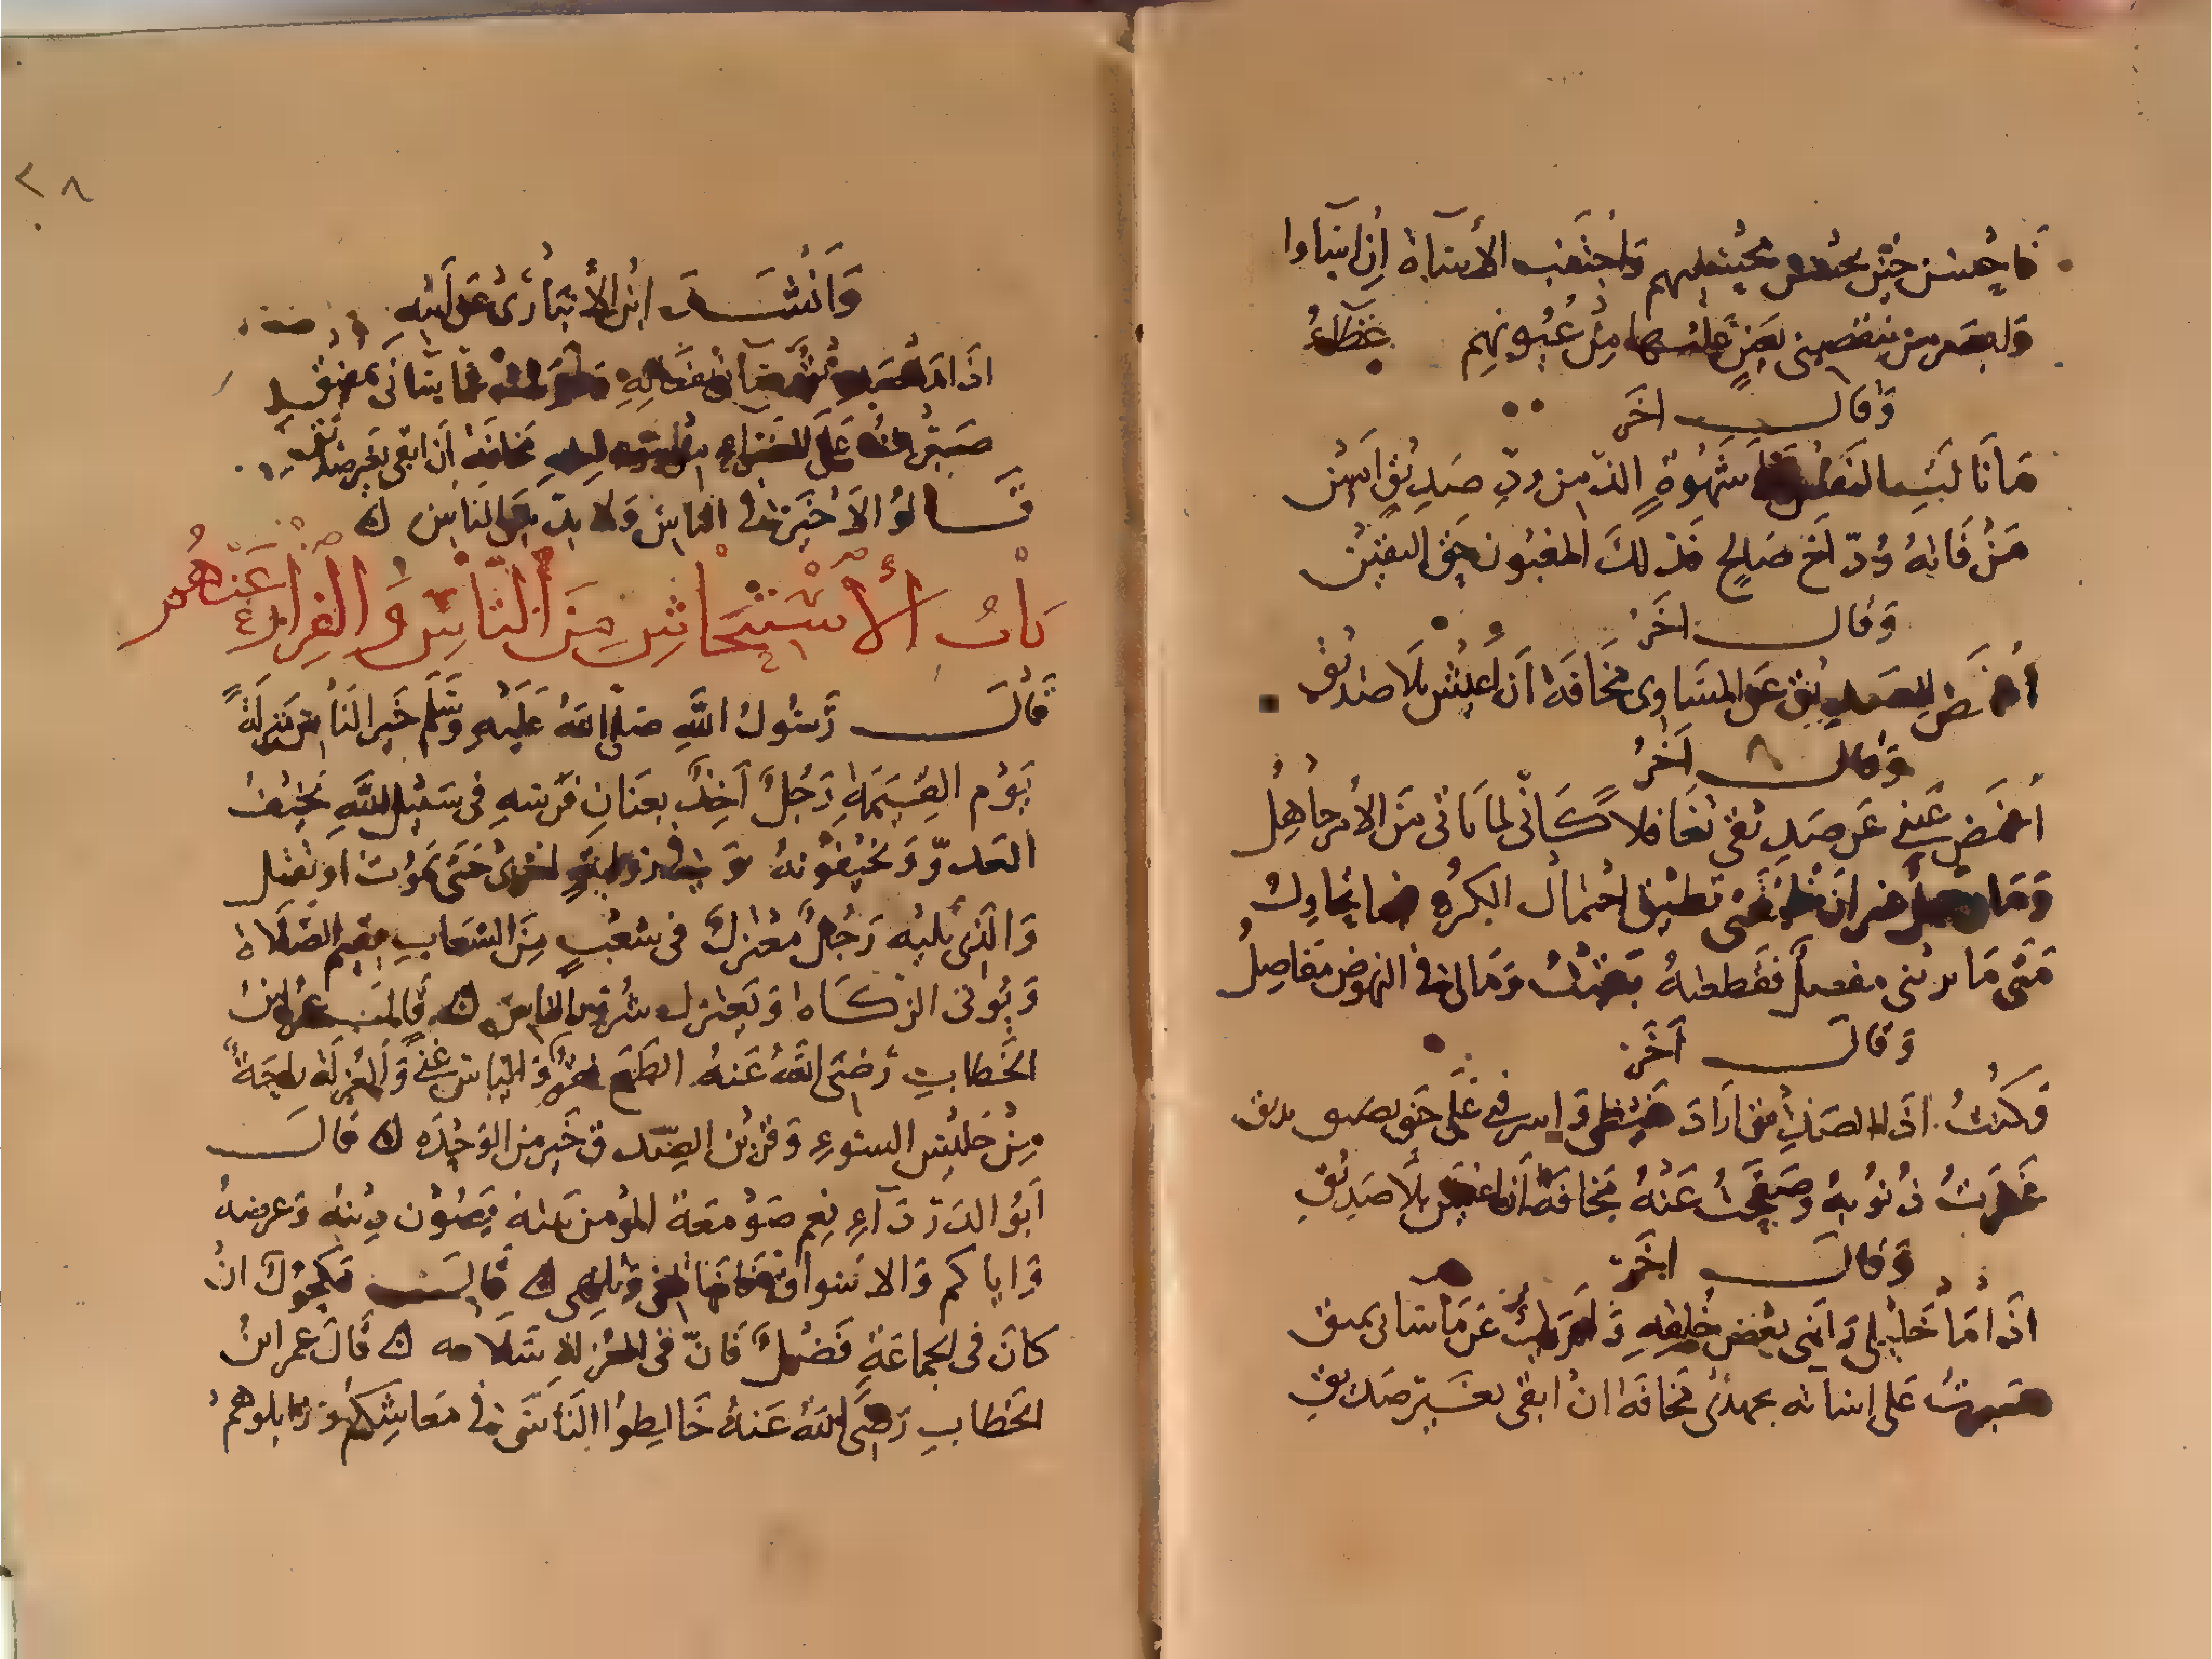 فاحسن حين يحسن محسنهم واجتنب الأساة إن اساوا
وابصر من بعين عليها من عيوبهم غطاء
وقال اخر
ما نالت النفس شهوة الذ من ود صديق امين
من فاته ود اخ صالح فذلك المغبون حق اليقين
وقال اخر
أغمض للصديق عن المساوى مخافة ان أعيش بلا صديق
وقال اخر
اغمض عينى عن صديقى تغافلا كأنى لما ياتى من الأمر جاهل
وما غير ان تطيق احتمال الكره فيما تحاول
متى ما يربنى مفصل فقطعته بقيت ومالى فى النهوض مفاصل
وقال اخر
وكنت اذا الصديق اراد غيظى واشرقنى على حنق بريقى
غفرت ذنوبه وصفحت عنه مخافة ان اعيش بلا صديق
وقال اخر
اذا ما خليلى رابنى بعض خلقه ولم يك عن ما سانى بمفيق
صبرت على اشياء منه بجهدى مخافة ان ابقى بغير صديق
٢٨
وانشد ابن الأنبارى عن ابيه
اذا ما بمفيق
صبرت على الضراء مخافة ان ابقى بغير صديق
قالوا لا خير فى الناس ولا بد من الناس
باب الأستيحاش من الناس والفرار عنهم
قال رسول الله صلى الله عليه وسلم خير الناس منزلة
يوم القيمة رجل آخذ بعنان فرسه فى سبيل الله يخيف
العدو ويخيفونه وفى رواية اخرى حتى يموت او يقتل
والذى يليه رجل معتزل فى شعب من الشعاب يقيم الصلاة
ويوتى الزكاة ويعتزل شرور الناس قال عمر ابن
الخطاب رضى الله عنه الطمع فقر والياس غنى والعزلة راحة
من جليس السوء وقرين الصدق خير من الوحده قال
ابو الدرداء نعم صومعة المومن بيته يصون دينه وعرضه
واياكم والاسواق فانها تلغى وتلهى قال مكحول ان
كان فى الجماعة فضل فان فى العزلة سلامه قال عمر ابن
الخطاب رضى الله عنه خالطوا الناس فى معايشكم وزايلوهم